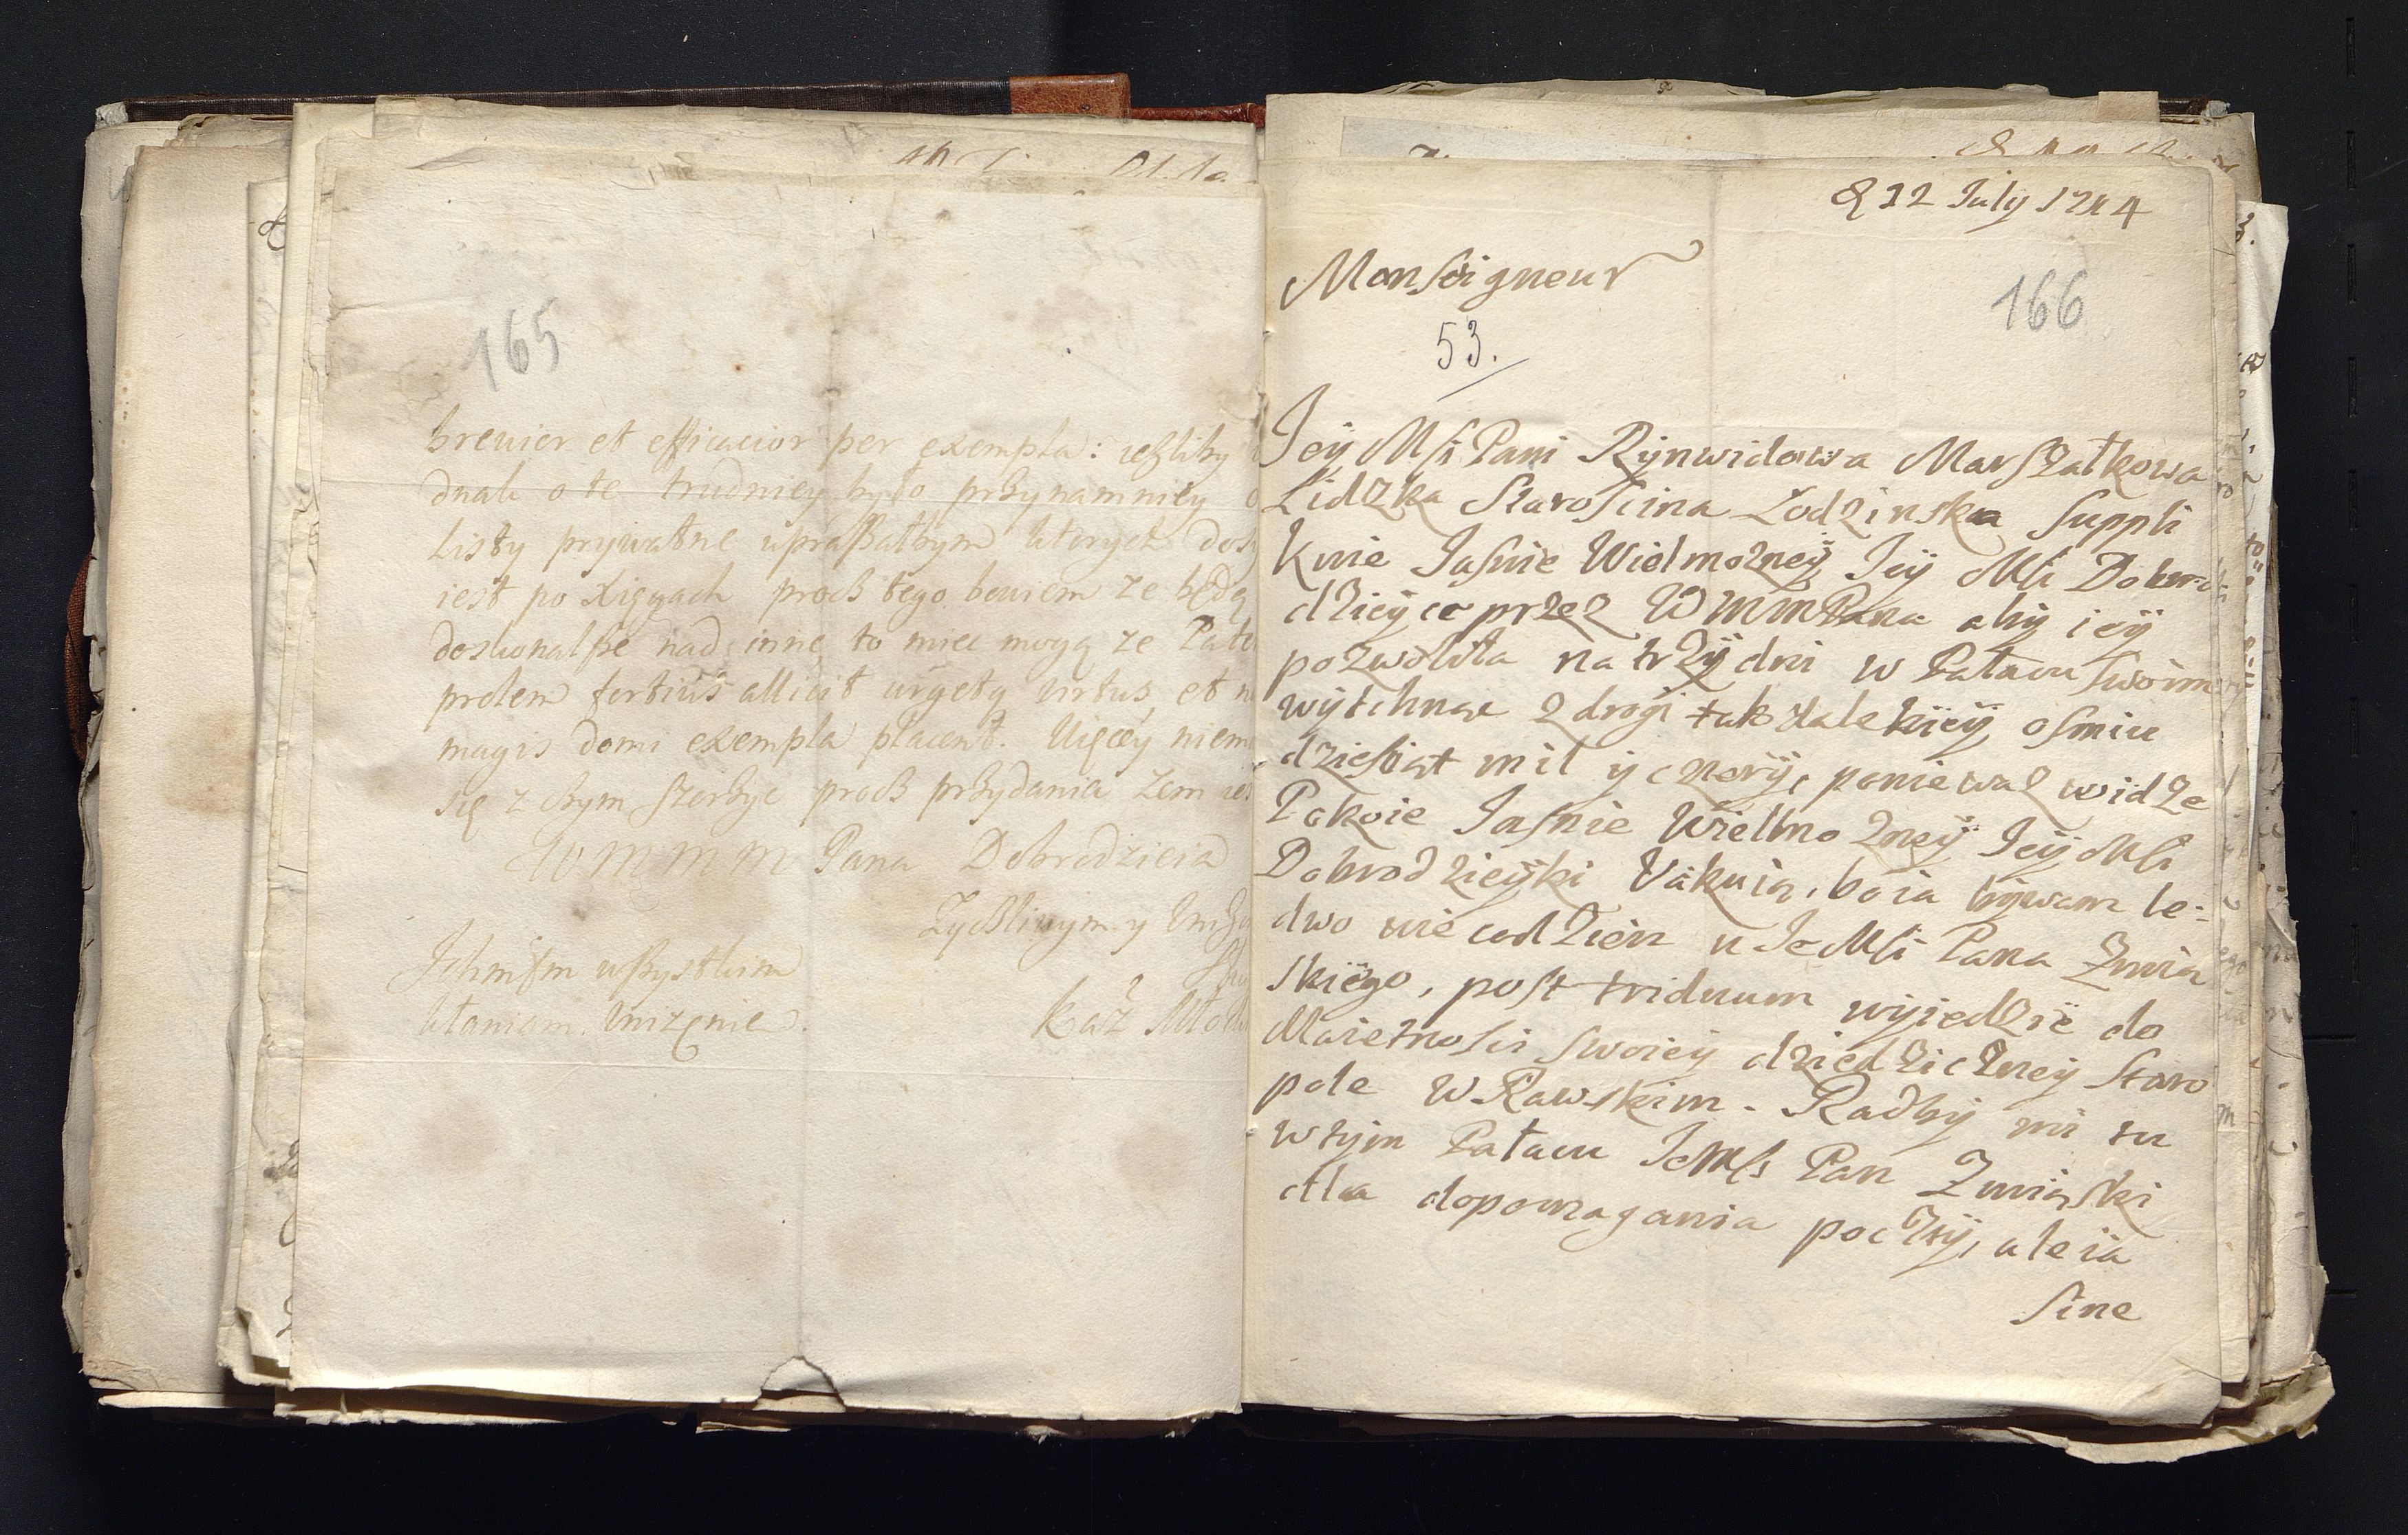 165
brevier et efficacior per exempla: ieżliby
dnak o te trudniey było przynamniey o
Listy prywatne upraßałbym ktorych dosy
iest po Xięgach procz tego bowiem ze będą
doskonalße nad inne to miec mogą ze
prolem fortius allicit urgetq virtus, et
magis domi exempla placent. Więcey niem
się z czym szerzyc procz przydania żem ies
W M M M Pana Dobrodzieia
Zyczliwym y
Ichmſm wßystkim
kłaniam Unizenie.
Kaz
D 12 July 1744
Monseigneur
53.
166
Iey Mſci Pani Rynwidowa Marszałkowa
Lidzka Starościna Łodzinska Suppli
kuie Jaśnie Wielmozney Iey Mſci Dobro
dzieyce przez WMMPana aby iey
pozwoliła na trzy dni w Pałacu Swoim
wytchnąc z drogi tak dalekiey, osmiu
dziesiąt mil y cztery, poniewaz widze
Pokoie Jaśnie Wielmozney Iey Mſci
Dobrodzieyki Vakuią, bo ia bywam le=
dwo nie codzien u Ie Mſci Pana Zmin
skiego, post triduum wyiedzie do
Maietnosci Swoiey dziedziczney Staro
pole w Rawskim. Radby mi tu
w tym Pałacu IeMſci Pan Zminski
dla dopomagania poczty, ale ia
Sine